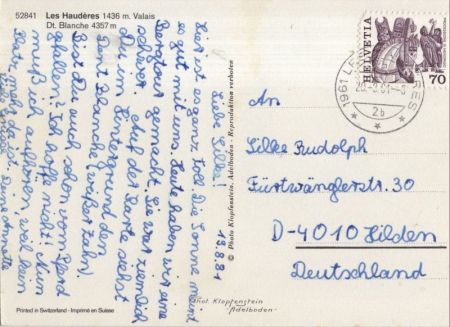 52841 Les Haudères 1436 m. Valais
Dt. Blanche 4357 m
HELVETIA
70
1961 LES
2b
13.8.81
Liebe Silke!
Hier ist es ganz toll. Die Sonne meint
es gut mit uns. Heute haben wir eine
Bergtour gemacht. Sie war ziemlich
schwer. Auf der Karte siehst
Du im Hintergrund den
Dent Blanche (weißer Zahn).
Bist Du auch schon vom Pferd
gefallen? Ich hoffe nicht! Nun
muß ich aufhören, weil kein
Platz mehr da ist. Deine Annette
Viele Grüße
© Photo Klopfenstein, Adelboden - Reproduktion verboten
An
Silke Rudolph
Fürtwänglerstr. 30
D-4010 Hilden
Deutschland
Printed in Switzerland - Imprimé en Suisse
Phot. Klopfenstein
Adelboden